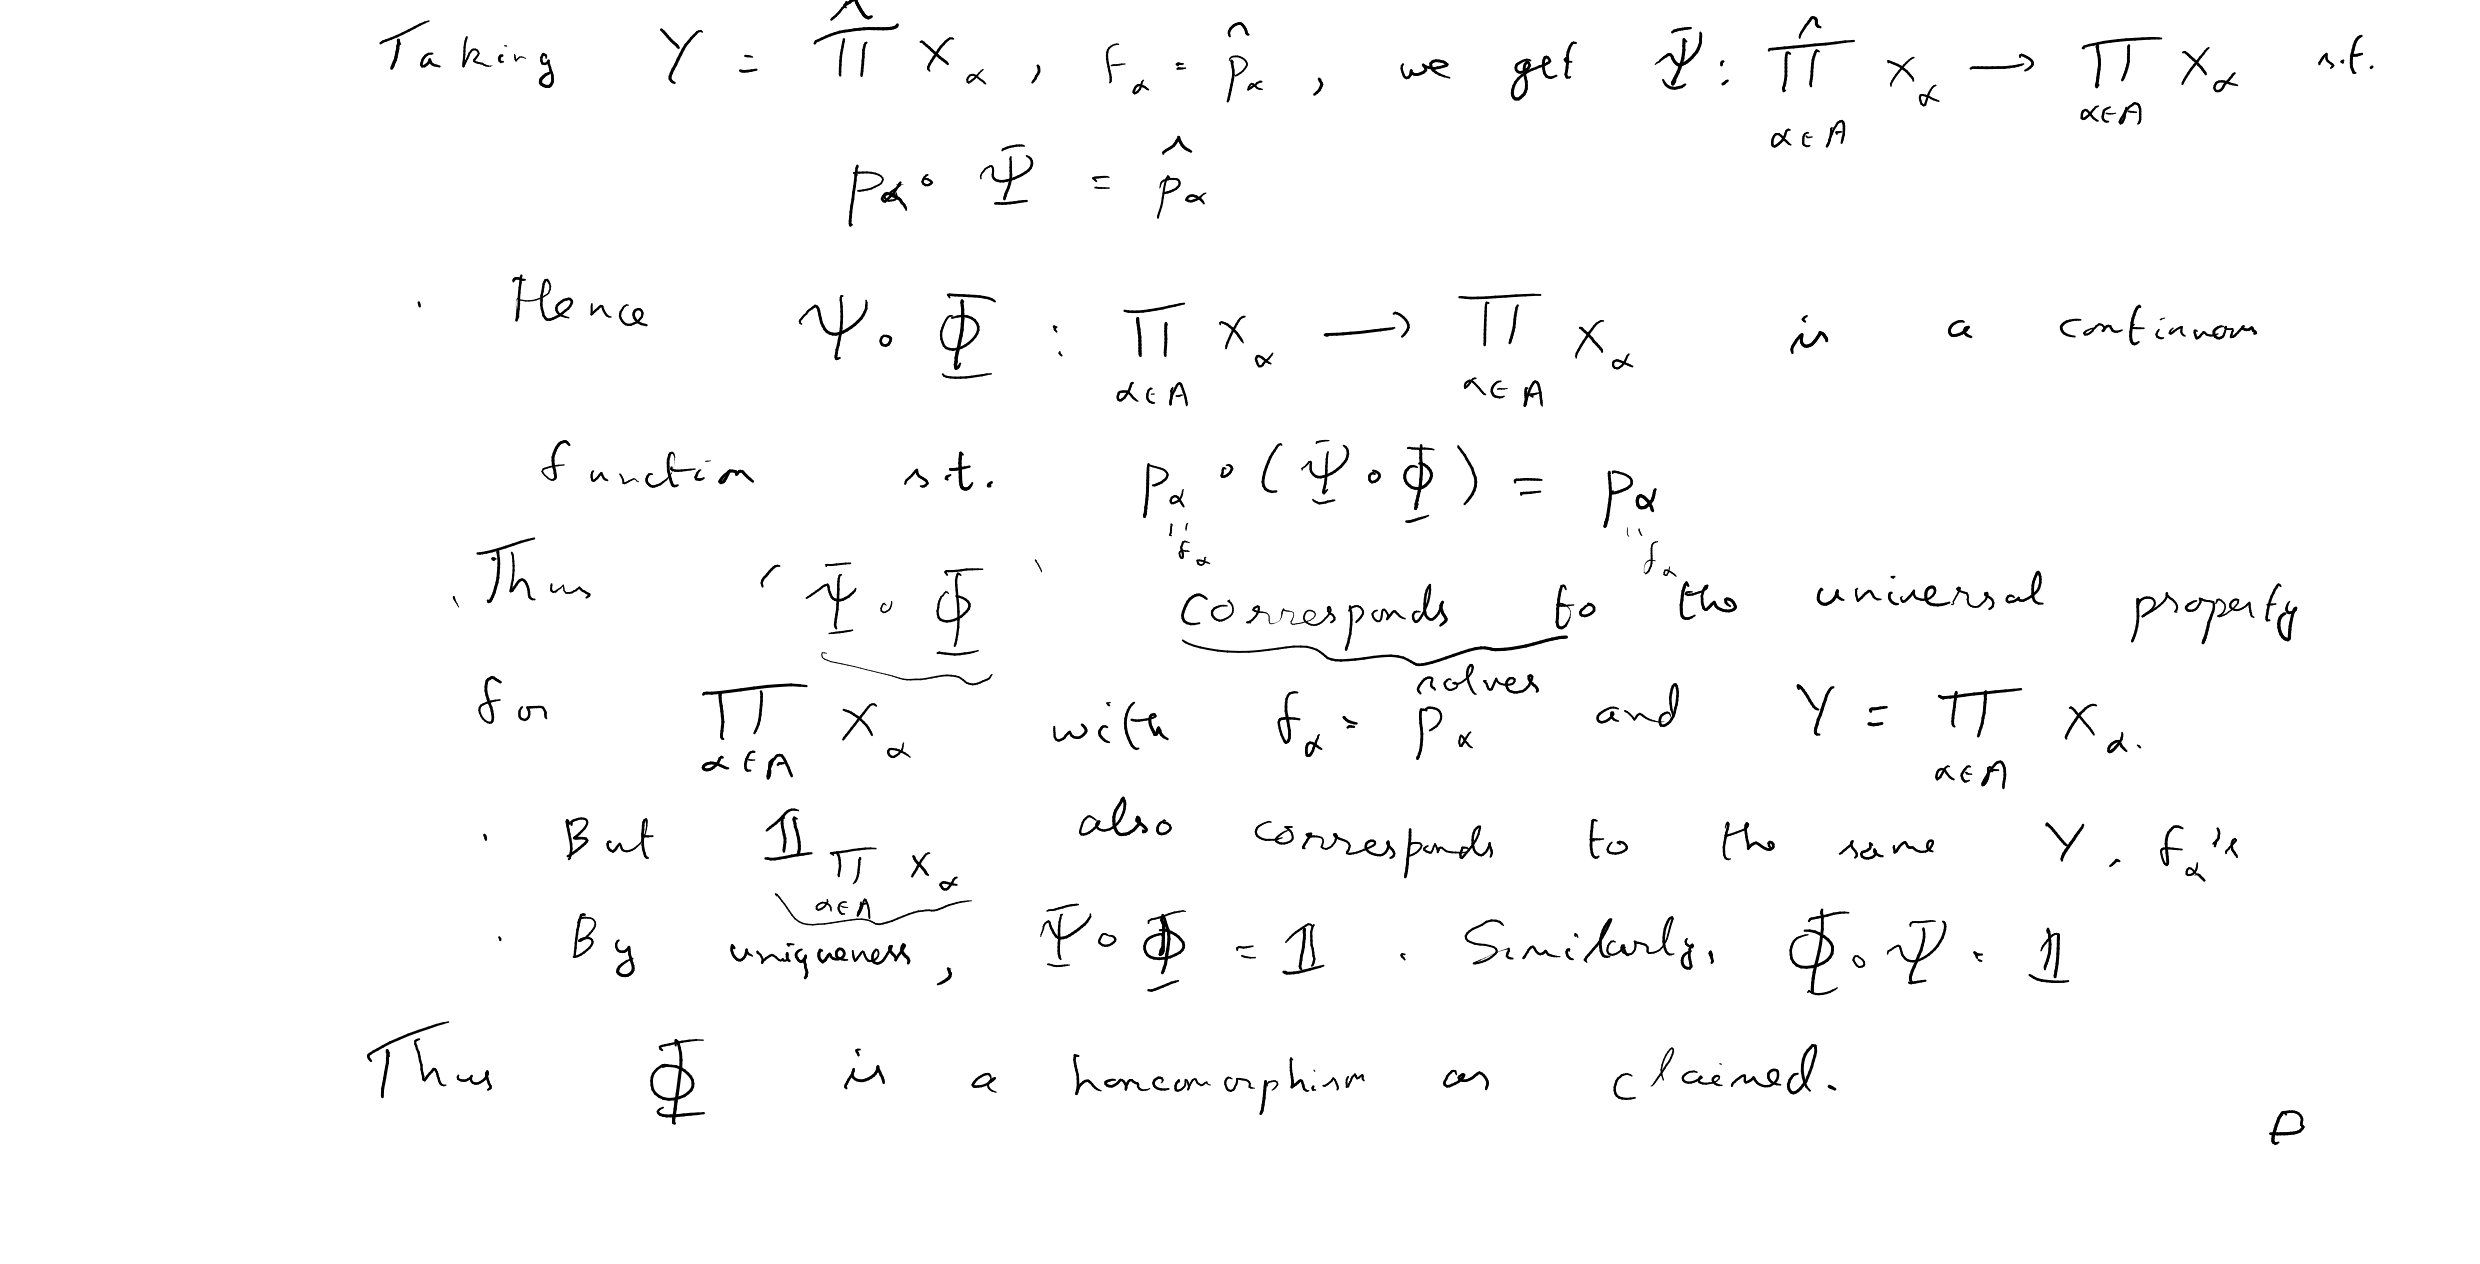 Taking Y = ∏̂ X_α , f_α = p̂_α , we get Ψ : ∏̂_{α∈A} X_α → ∏_{α∈A} X_α s.t.
p_α ∘ Ψ = p̂_α
· Hence Ψ ∘ Φ : ∏_{α∈A} X_α → ∏_{α∈A} X_α is a continuous
function s.t. p_α ∘ (Ψ ∘ Φ) = p_α
" f_α " f_α
· Thus ' Ψ ∘ Φ ' corresponds to the universal property
solves
for ∏_{α∈A} X_α with f_α = p_α and Y = ∏_{α∈A} X_α.
· But 𝟙_{∏_{α∈A} X_α} also corresponds to the same Y, f_α's
· By uniqueness, Ψ ∘ Φ = 𝟙 . Similarly, Φ ∘ Ψ = 𝟙
Thus Φ is a homeomorphism as claimed.
□